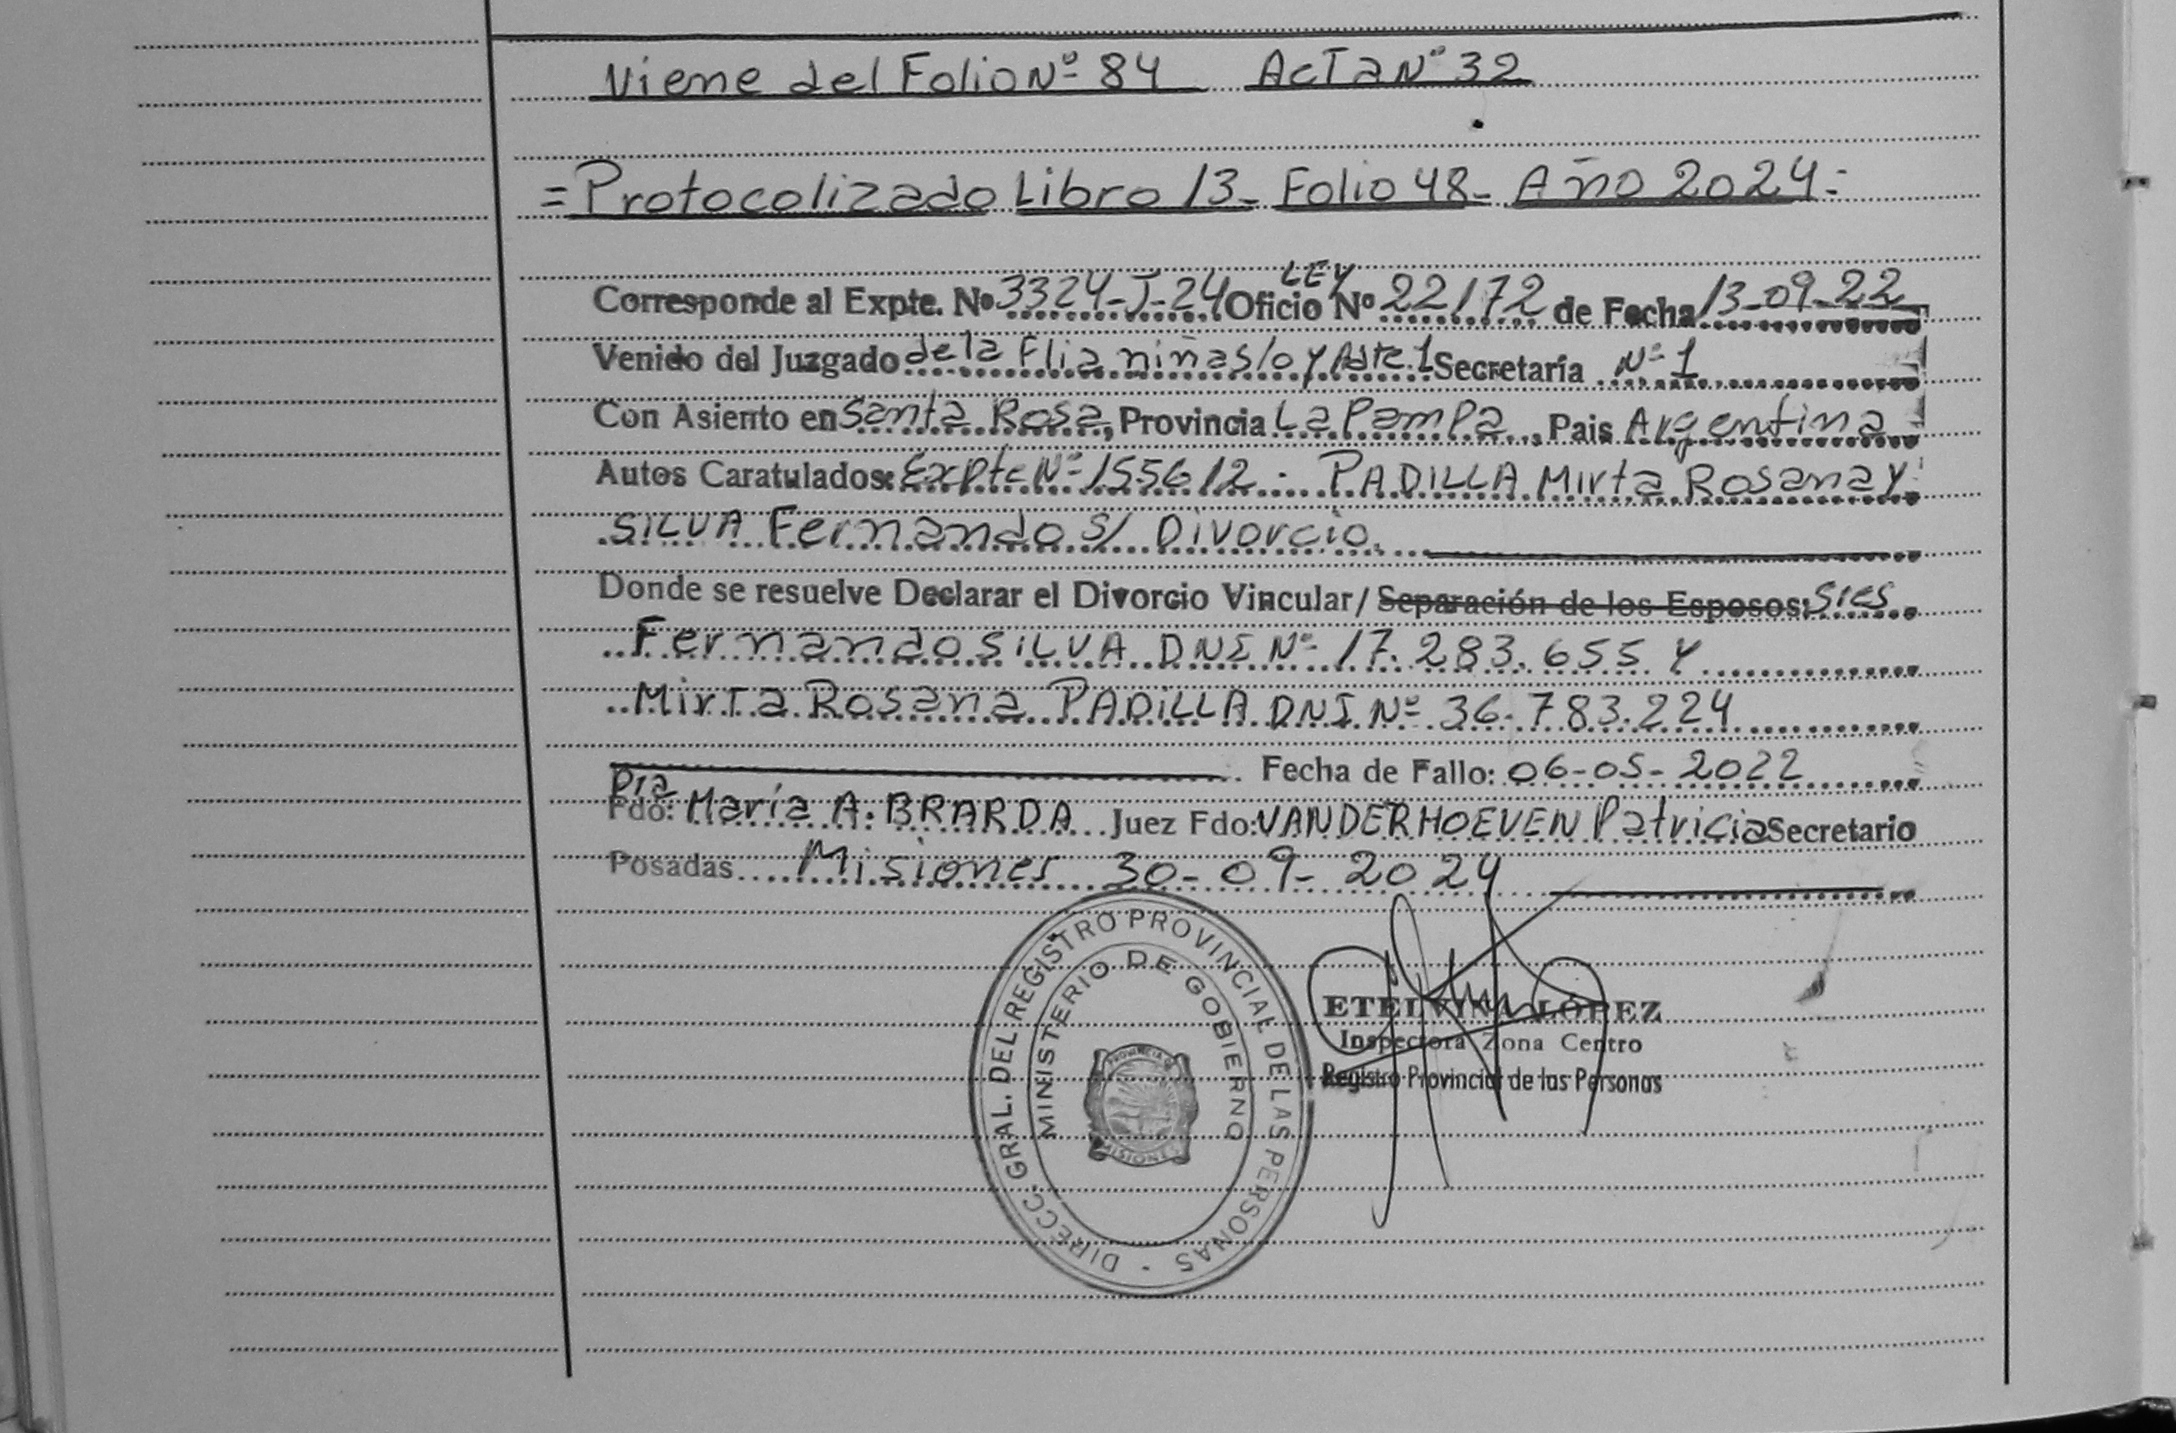 Viene del Folio Nº 84 Acta Nº 32
=Protocolizado Libro 13- Folio 48- Año 2024=
Corresponde al Expte. Nº 3324-J-24 Oficio LEY Nº 22172 de Fecha 13-09-22
Venido del Juzgado de la Flia niñas/o y Adte 1 Secretaría Nº 1
Con Asiento en Santa Rosa, Provincia La Pampa, Pais Argentina
Autos Caratulados: Expte Nº 155612 - PADILLA Mirta Rosana y
SILVA Fernando S/ Divorcio.
Donde se resuelve Declarar el Divorcio Vincular/ Separación de los Esposos: Sres
Fernando SILVA DNI Nº 17.283.655 y
Mirta Rosana PADILLA DNI Nº 36.783.224
Fecha de Fallo: 06-05-2022
Dra
Fdo: María A. BRARDA Juez Fdo: VANDERHOEVEN Patricia Secretario
Posadas Misiones 30-09-2024
DIRECC. GRAL. DEL REGISTRO PROVINCIAL DE LAS PERSONAS -
MINISTERIO DE GOBIERNO
PROVINCIA D
MISIONES
ETELVINA LÓPEZ
Inspectora Zona Centro
Registro Provincial de las Personas